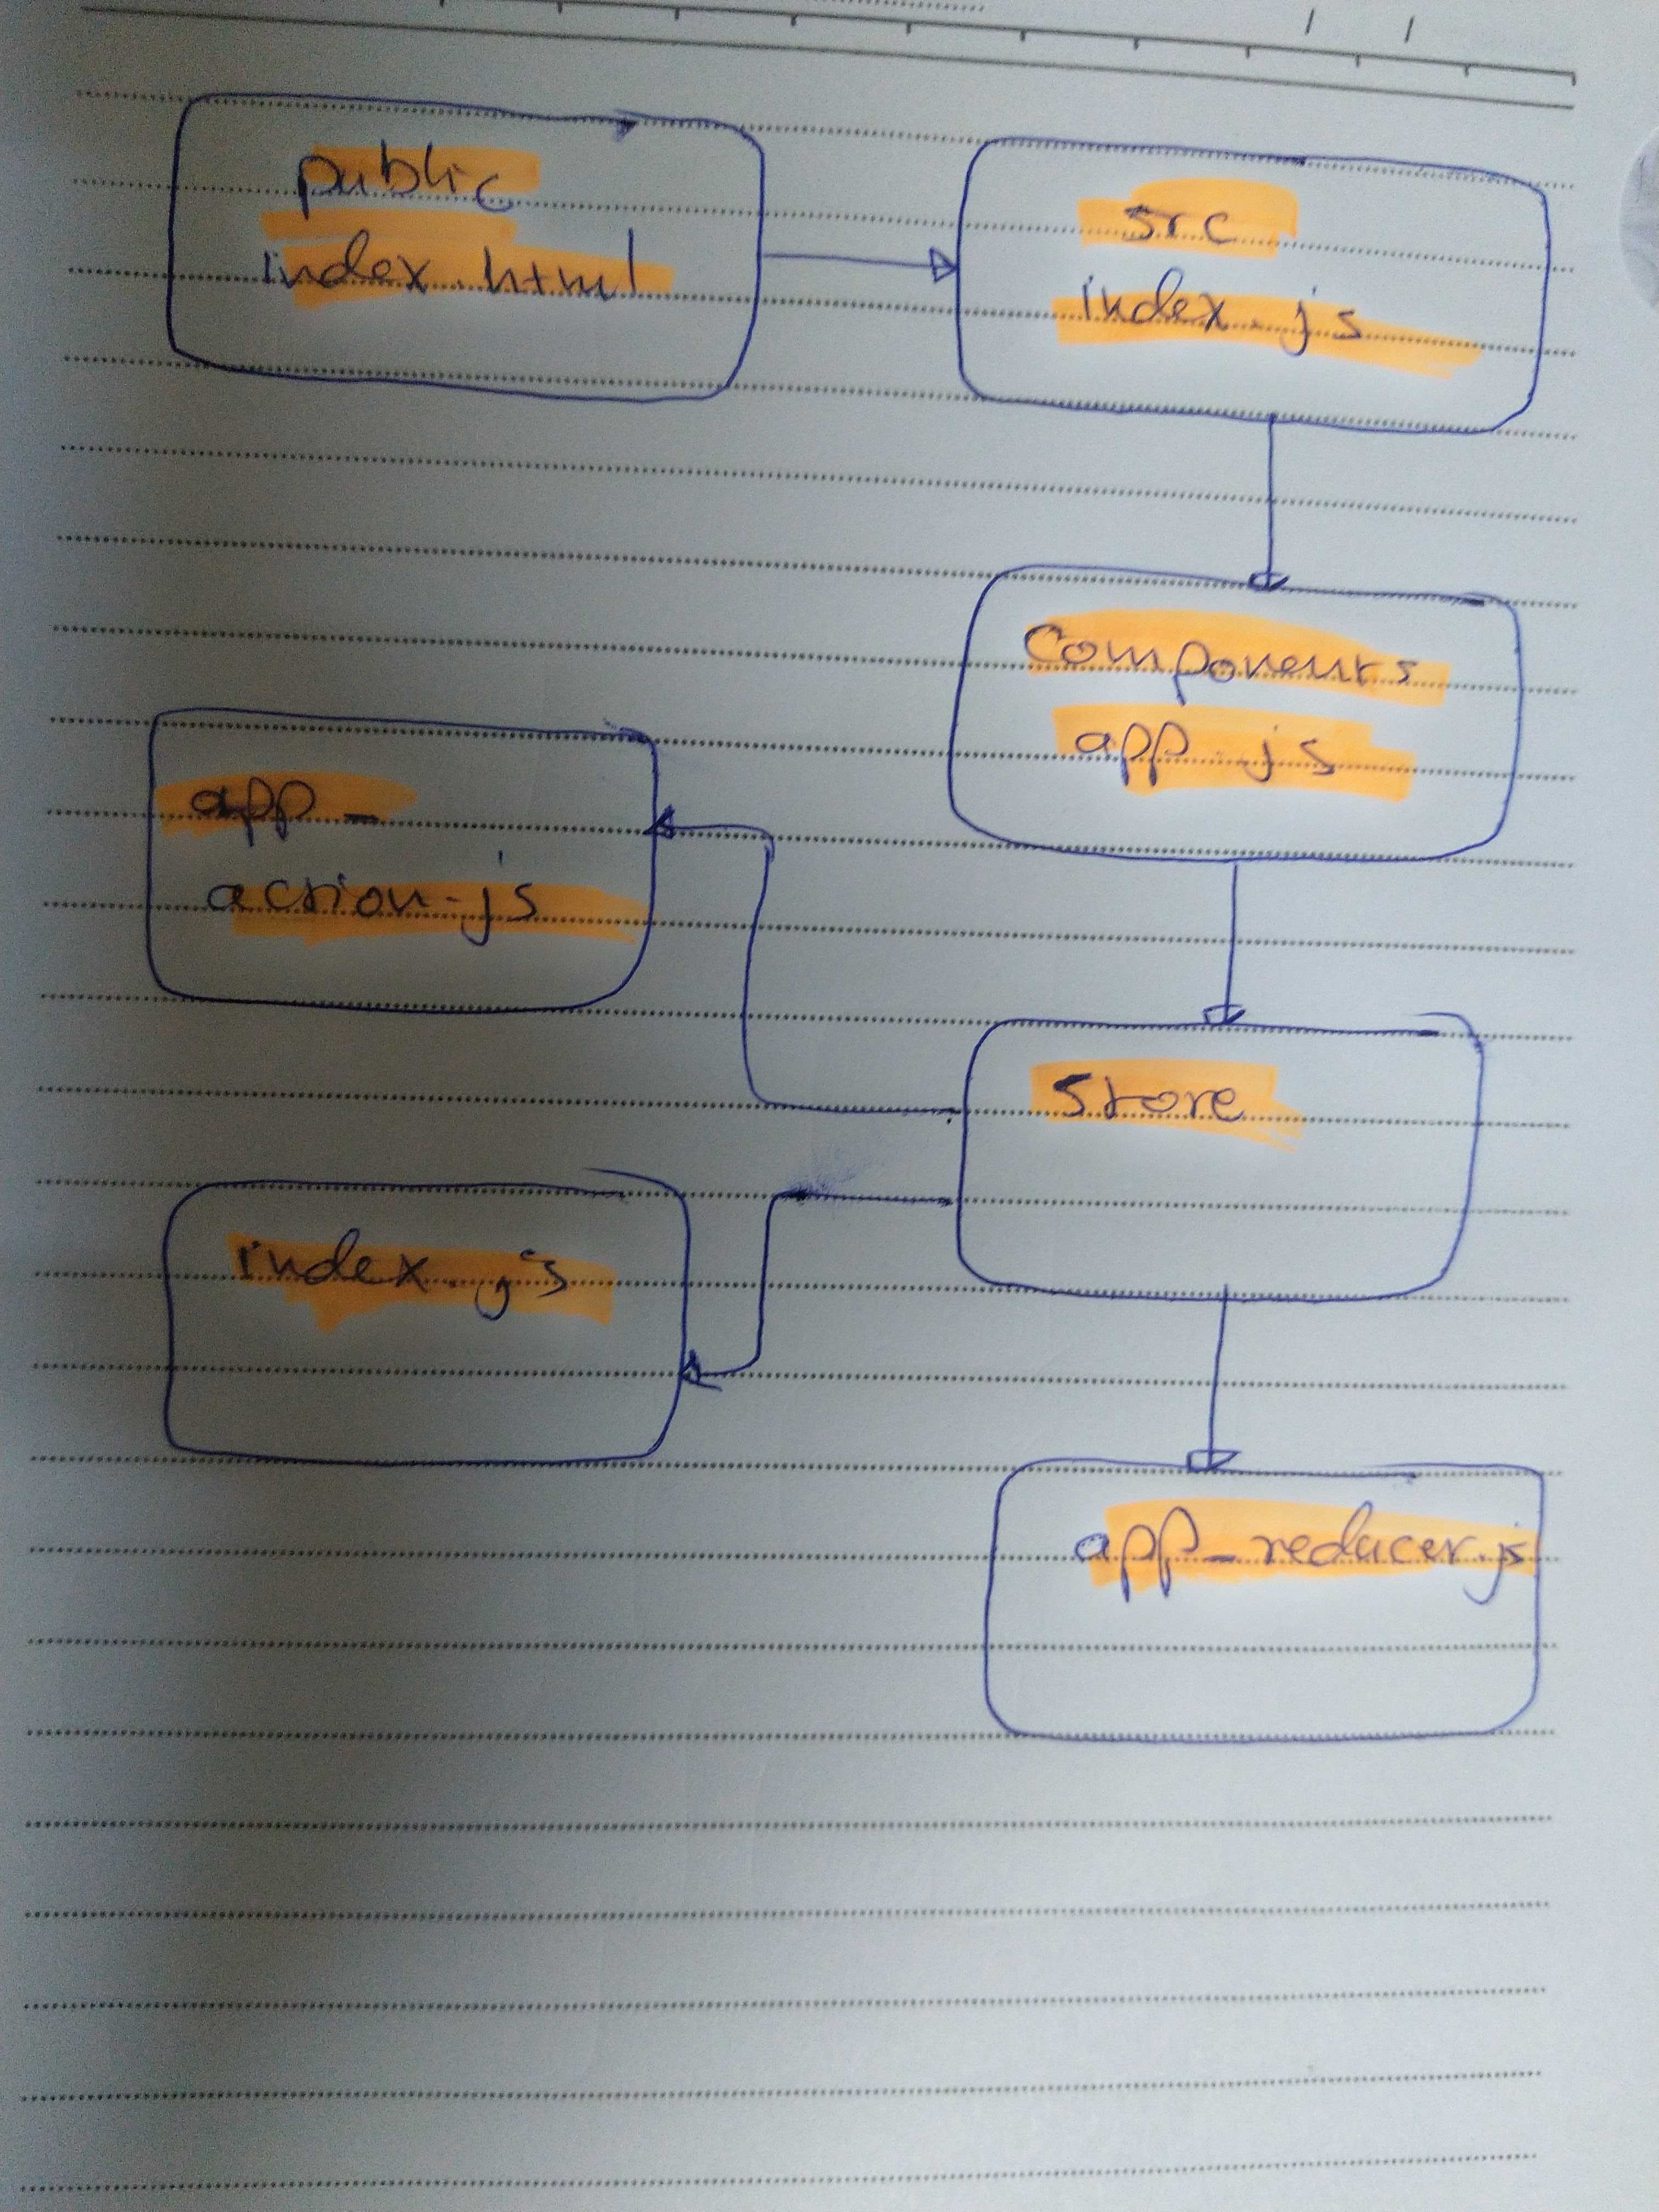 public
index.html
src
index.js
Components
app.js
app_
action.js
Store
index.js
app_reducer.js